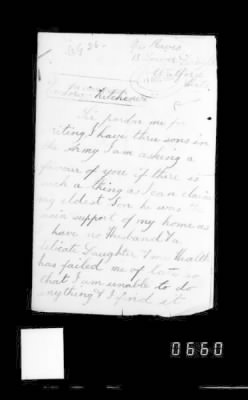 Mrs Hawes
Watford
Herts
Lord Kitchener
Sir pardon me for
writing, I have three sons in
the Army I am asking a
favour of you if there is
such a thing as I can claim
my eldest Son he was the
main support of my home as
I have no Husband & a
delicate Daughter & my Health
has failed me of late so
that I am unable to do
anything & I find it
0660